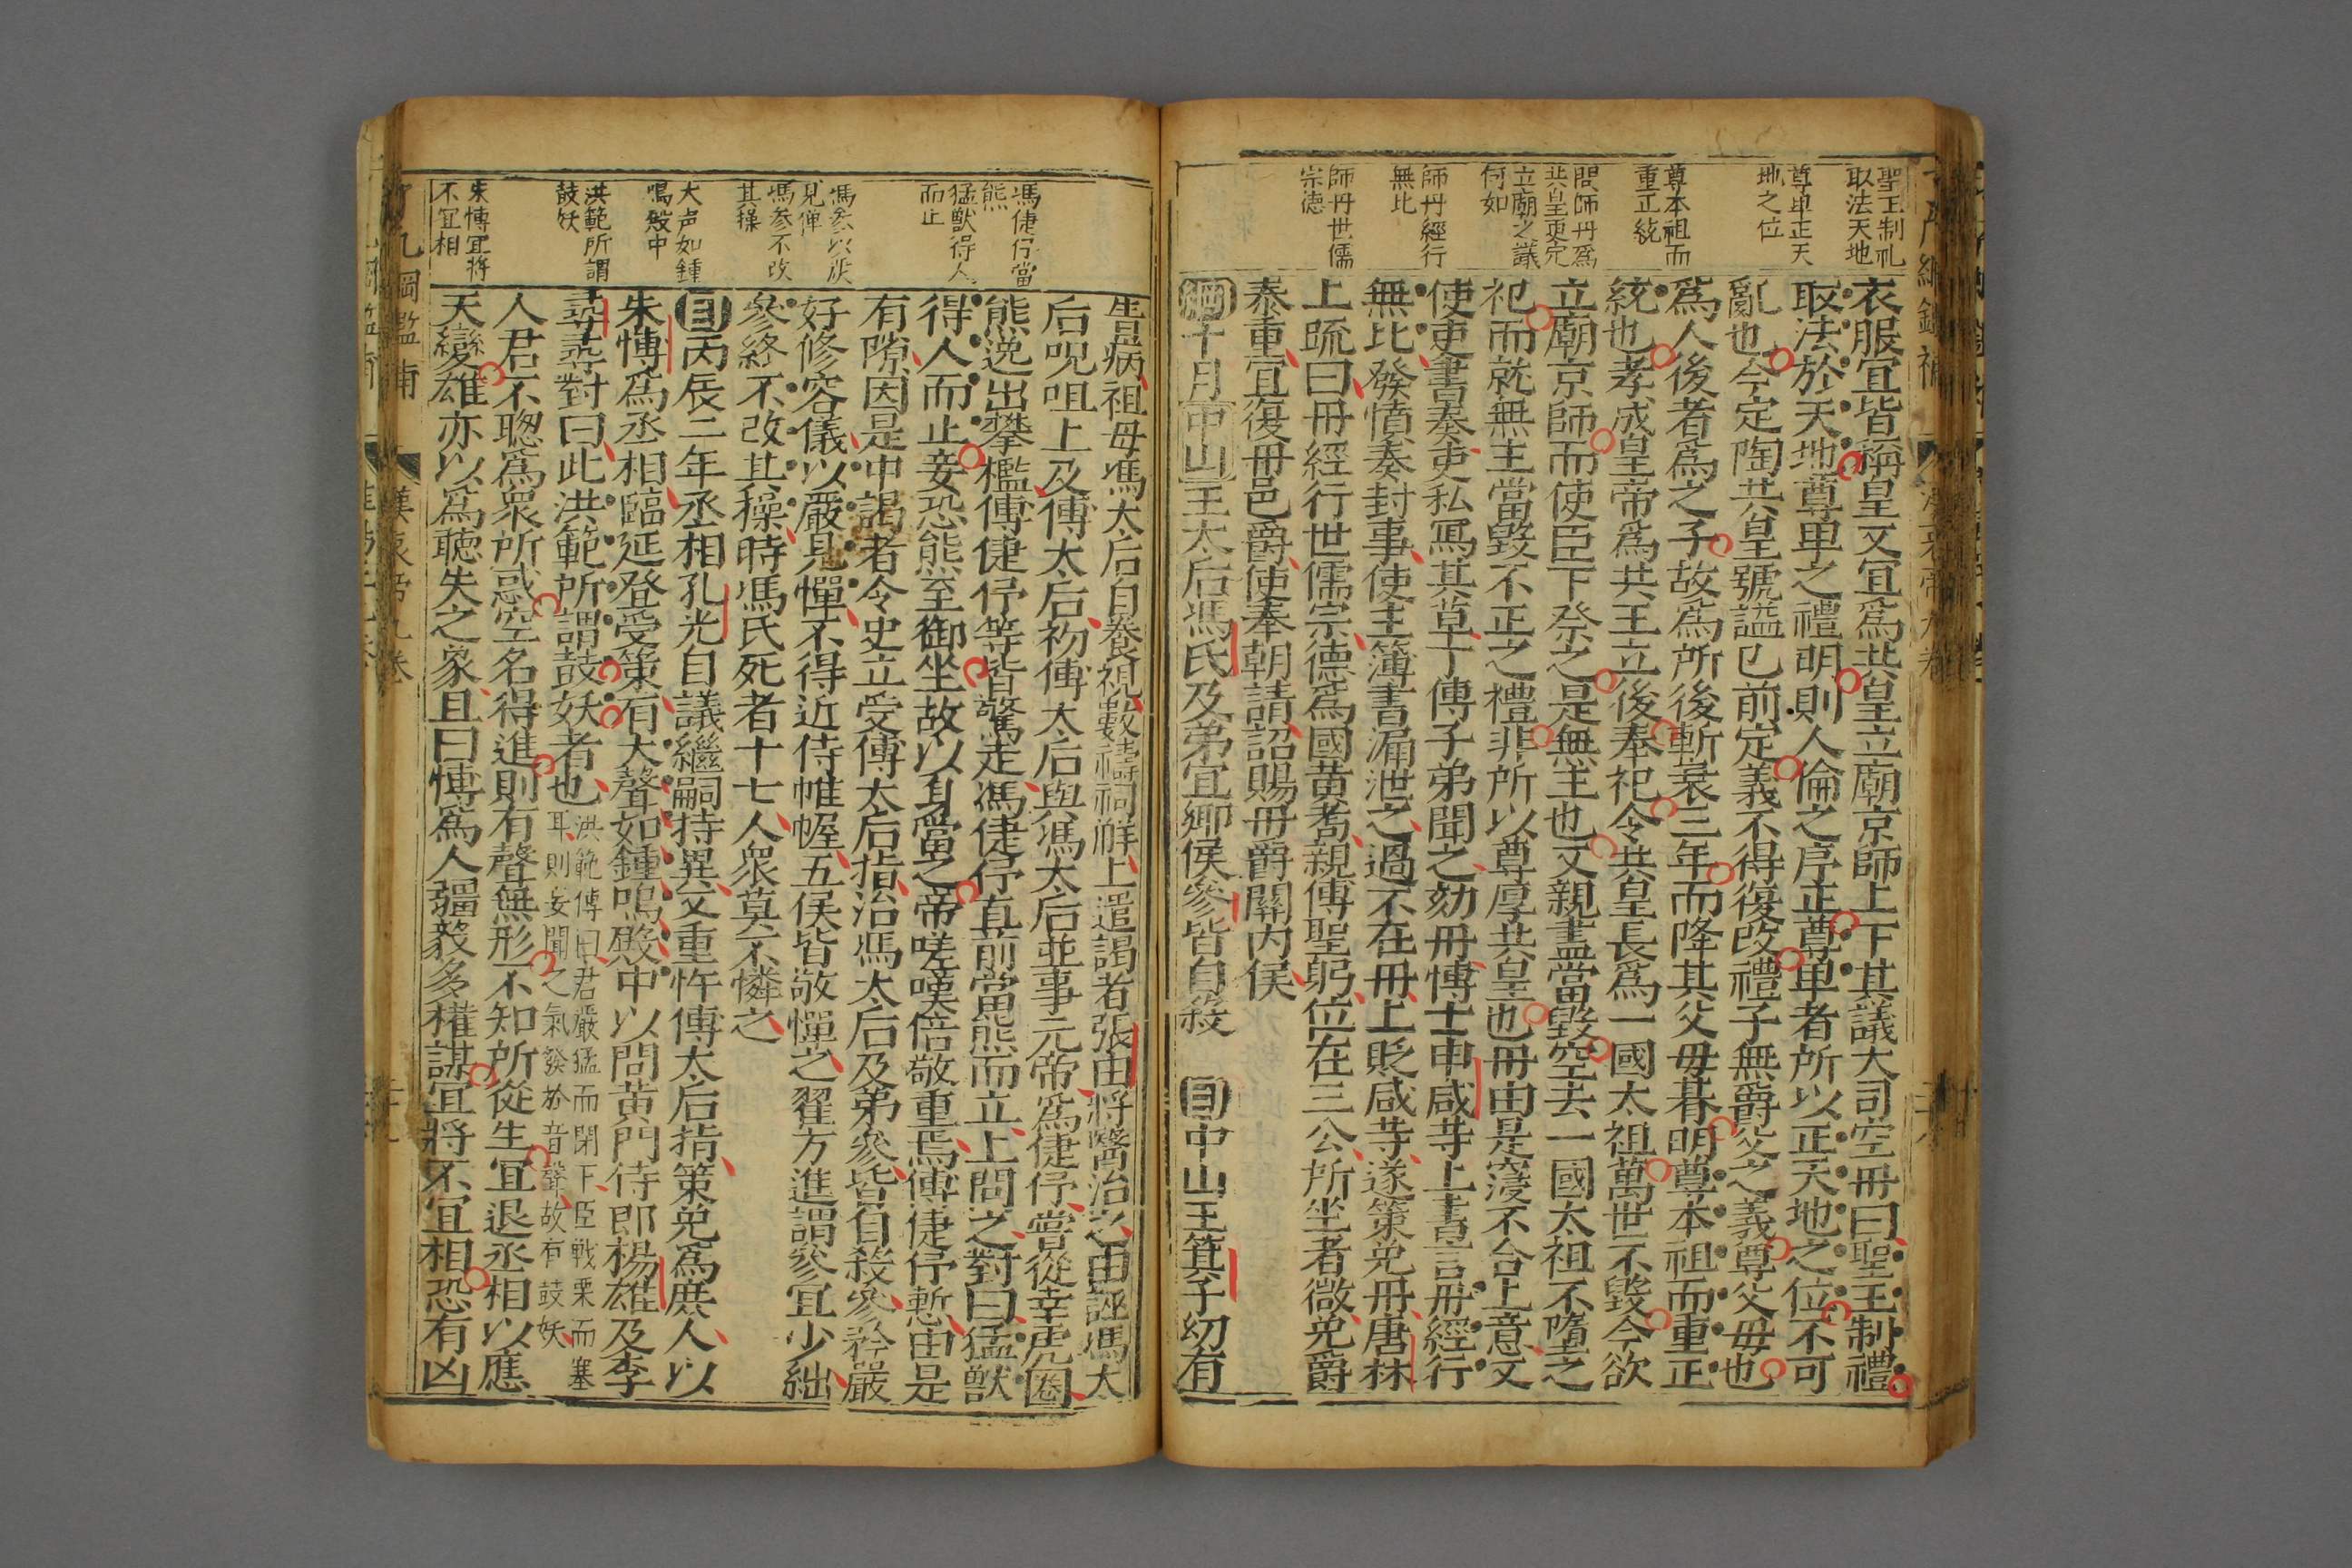 聖王制礼
取法天地
尊卑正天
地之位
尊本祖而
重正統
問師丹為
共皇更定
立廟之議
何如
師丹經行
無比
師丹世儒
宗德
衣服宜皆稱皇又宜爲共皇立廟京師上下其議大司空丹曰聖王制禮
取法於天地尊卑之禮明則人倫之序正尊卑者所以正天地之位不可
亂也今定陶共皇號謚已前定義不得復改禮子無爵父之義尊父母也
爲人後者爲之子故爲所後斬衰三年而降其父母朞明尊本祖而重正
統也孝成皇帝爲共王立後奉祀令共皇長爲一國太祖萬世不毀今欲
立廟京師而使臣下祭之是無主也又親盡當毀空去一國太祖不墮之
祀而就無主當毀不正之禮非所以尊厚共皇也丹由是寖不合上意又
使吏書奏吏私寫其草丁傅子弟聞之劾丹博士申咸等上書言丹經行
無比發憤奏封事使主簿書漏泄之過不在丹上貶咸等遂策免丹唐林
上疏曰丹經行世儒宗德爲國黄耉親傅聖躬位在三公所坐者微免爵
泰重宜復丹邑爵使奉朝請詔賜丹爵關内侯
綱十月中山王太后馮氏及弟宜鄉侯參皆自殺 目中山王箕子幼有
馮倢伃當
熊
猛獸得人
而止
馮參以嚴
見憚
馮參不改
其操
大声如鍾
鳴殿中
洪範所謂
鼓妖
朱愽宜將
不宜相
眚病祖母馮太后自養視數禱祠解上遣謁者張由將醫治之由誣馮太
后呪咀上及傅太后初傅太后與馮太后並事元帝爲倢伃嘗從幸虎圈
熊逸出攀檻傅倢伃等皆驚走馮倢伃直前當熊而立上問之對曰猛獸
得人而止妾恐熊至御坐故以身當之帝嗟嘆倍敬重焉傅倢伃慙由是
有隙因是中謁者令史立受傅太后指治馮太后及弟參皆自殺參矜嚴
好修容儀以嚴見憚不得近侍帷幄五侯皆敬憚之翟方進謂參宜少絀
參終不改其操時馮氏死者十七人衆莫不憐之
目丙辰二年丞相孔光自議繼嗣持異又重忤傅太后指策免爲庶人以
朱愽爲丞相臨延登受策有大聲如鍾鳴殿中以問黄門侍郎楊雄及李
尋尋對曰此洪範所謂鼓妖者也洪範傳曰君嚴猛而閉下臣戰栗而塞
耳則妄聞之氣發於音聲故有鼓妖
人君不聰爲衆所惑空名得進則有聲無形不知所從生宜退丞相以應
天變雄亦以爲聽失之象且曰愽爲人疆毅多權謀宜將不宜相恐有凶